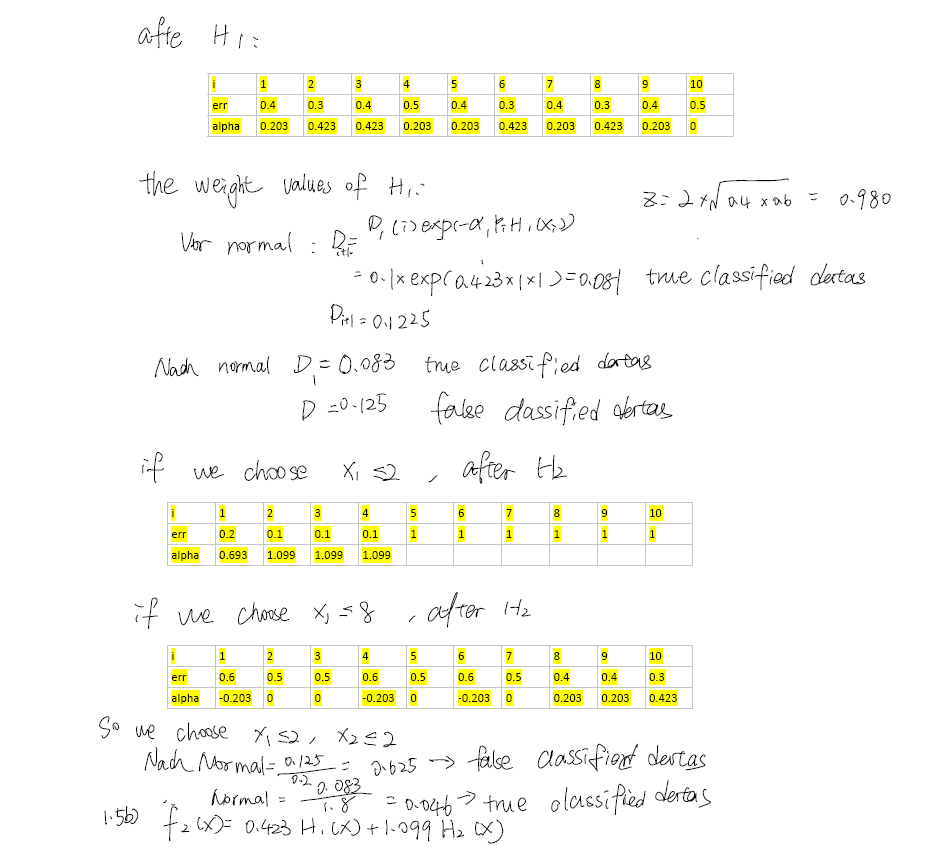 afte H1:
i 1 2 3 4 5 6 7 8 9 10
err 0.4 0.3 0.4 0.5 0.4 0.3 0.4 0.3 0.4 0.5
alpha 0.203 0.423 0.423 0.203 0.203 0.423 0.203 0.423 0.203 0
the weight values of H1:
Z = 2 × √0.4 × 0.6 = 0.980
Vor normal : Di+1 = D1(i) exp(-α1 Pi H1(xi))
= 0.1 × exp(0.423×1×1) = 0.081 true classified dartas
Di+1 = 0.1225
Nach normal D1 = 0.083 true classified dartas
D = 0.125 false classified dertas
if we choose X1 ≤2 , after H2
i 1 2 3 4 5 6 7 8 9 10
err 0.2 0.1 0.1 0.1 1 1 1 1 1 1
alpha 0.693 1.099 1.099 1.099
if we choose X1 ≤8 , after H2
i 1 2 3 4 5 6 7 8 9 10
err 0.6 0.5 0.5 0.6 0.5 0.6 0.5 0.4 0.4 0.3
alpha -0.203 0 0 -0.203 0 -0.203 0 0.203 0.203 0.423
So we choose X1 ≤2, X2 ≤2
Nach Normal = 0.125/0.2 = 0.625 → false classified dertas
Normal = 0.083/1.8 = 0.046 → true classified dertas
1.5b) f2(X) = 0.423 H1(X) + 1.099 H2(X)